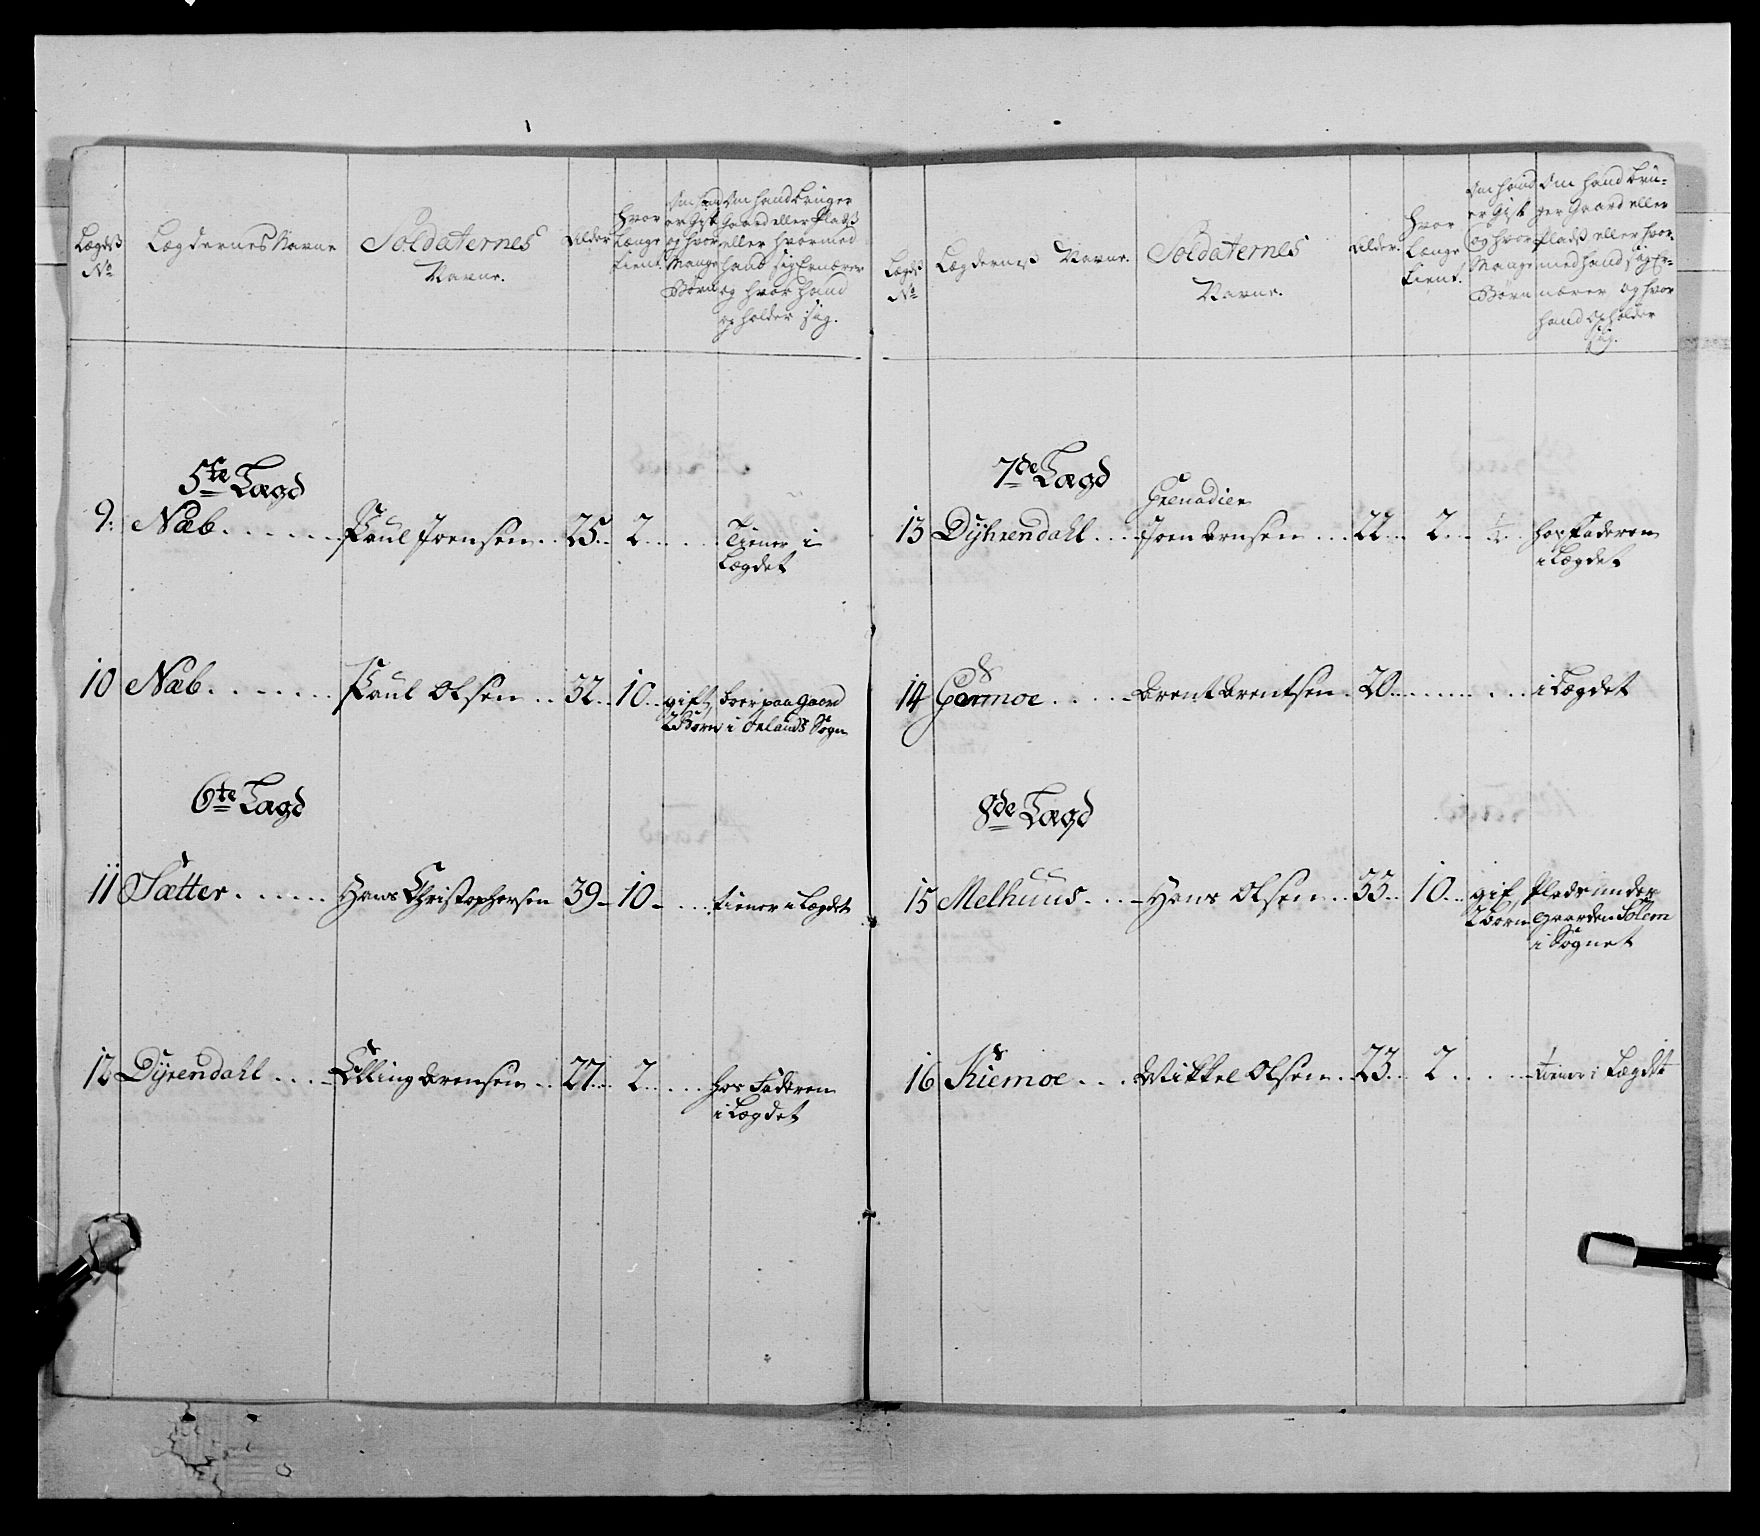 Lægds
No
Lægdernes Navne
Soldaternes
Navne.
Alder
Hvor
længe
tient.
Om hand
er Gift
og hvor
Mange
Børn
Om hand bruger
Gaard eller Plads
eller hvormed
hand sig Ernærer
og hvor hand
opholder sig.
5te Lægd
9. Næb Paul Joensen 25 2 Tiener i
Lægdet
10 Næb Paul Olsen 32 10 gift boer paa Gaard
2 Børn i Ørlands Sogn
6te Lægd
11 Sætter Hans Christophersen 39 10 tiener i Lægdet
12 Dyrendahl Elling Arensen 27 2 hos Faderen
i Lægdet
Lægds
No
Lægdernes Navne.
Soldaternes
Navne.
Alder
Hvor
længe
tient.
Om hand
er Gift
og hvor
Mange
Børn
Om hand bru-
ger Gaard eller
Plads eller hvor-
med hand sig Er-
nærer og hvor
hand opholder
sig.
7de Lægd
Grenadier
13 Dyhrendahl Joen Arnsen 22 2 hos Faderen
i Lægdet
14 Germoe Arent Arentsen 20 i Lægdet
8de Lægd
15 Melhuus Hans Olsen 33 10 gift Plads under
2 Børn Gaarden Solem
i Sognet
16 Kiemoe Mikkel Olsen 23 2 tiener i Lægdet